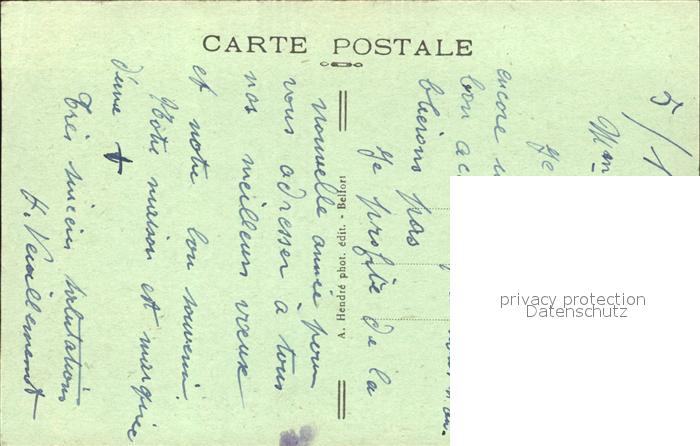 CARTE POSTALE
5/1
Mme
Je
encore
bon ac
blierons pas
Je profite de la
nouvelle année pour
vous adresser à tous
nos meilleurs vœux
et notre bon souvenir.
Notre maison est marquée
d'une +
Très sincères salutations
A. Hendré phot. édit. - Belfort
privacy protection
Datenschutz